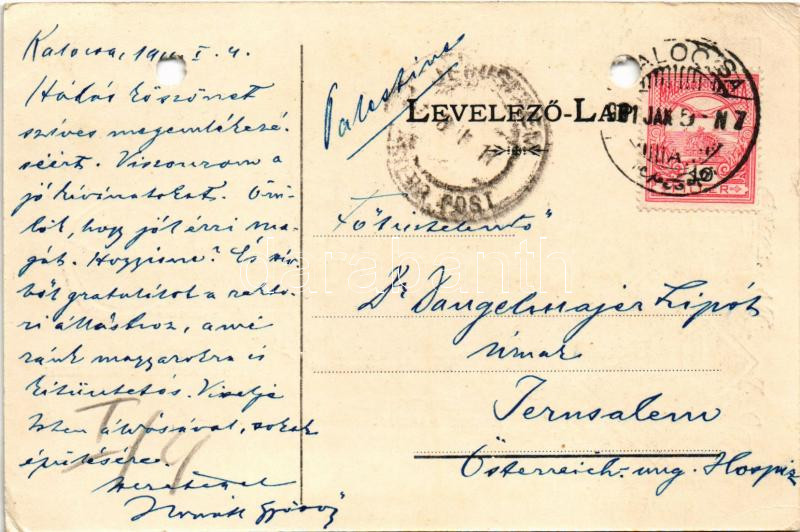 Kalocsa, 1911. I. 4.
Hálás köszönet
szíves megemlékezé-
séért. Viszonzom a
jó kívánatokat. Örü-
lök, hogy jól érzi ma-
gát. Hogyisne? És szív-
ből gratulálok a rekto-
ri álláshoz, a mi
ránk magyarokra is
kitüntetés. Viselje
Isten áldásával, sokak
épülésére.
Szeretettel
I/4
Palestina
LEVELEZŐ-LAP
KALOCSA
911 JAN 5 - N 7
Főtisztelendő
Dr Vangelmajer Lipót
úrnak
Jerusalem
Österreich.-ung. Hospiz
darabanth